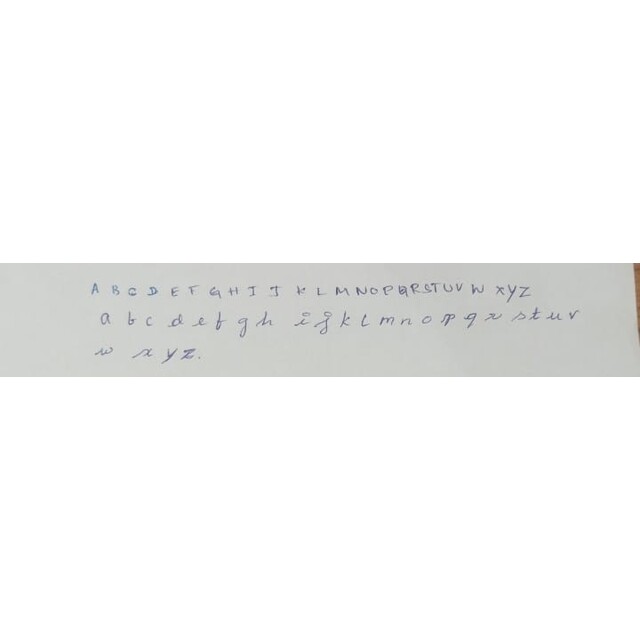 A B C D E F G H I J K L M N O P Q R S T U V W X Y Z
a b c d e f g h i j k l m n o p q r s t u v
w x y z.